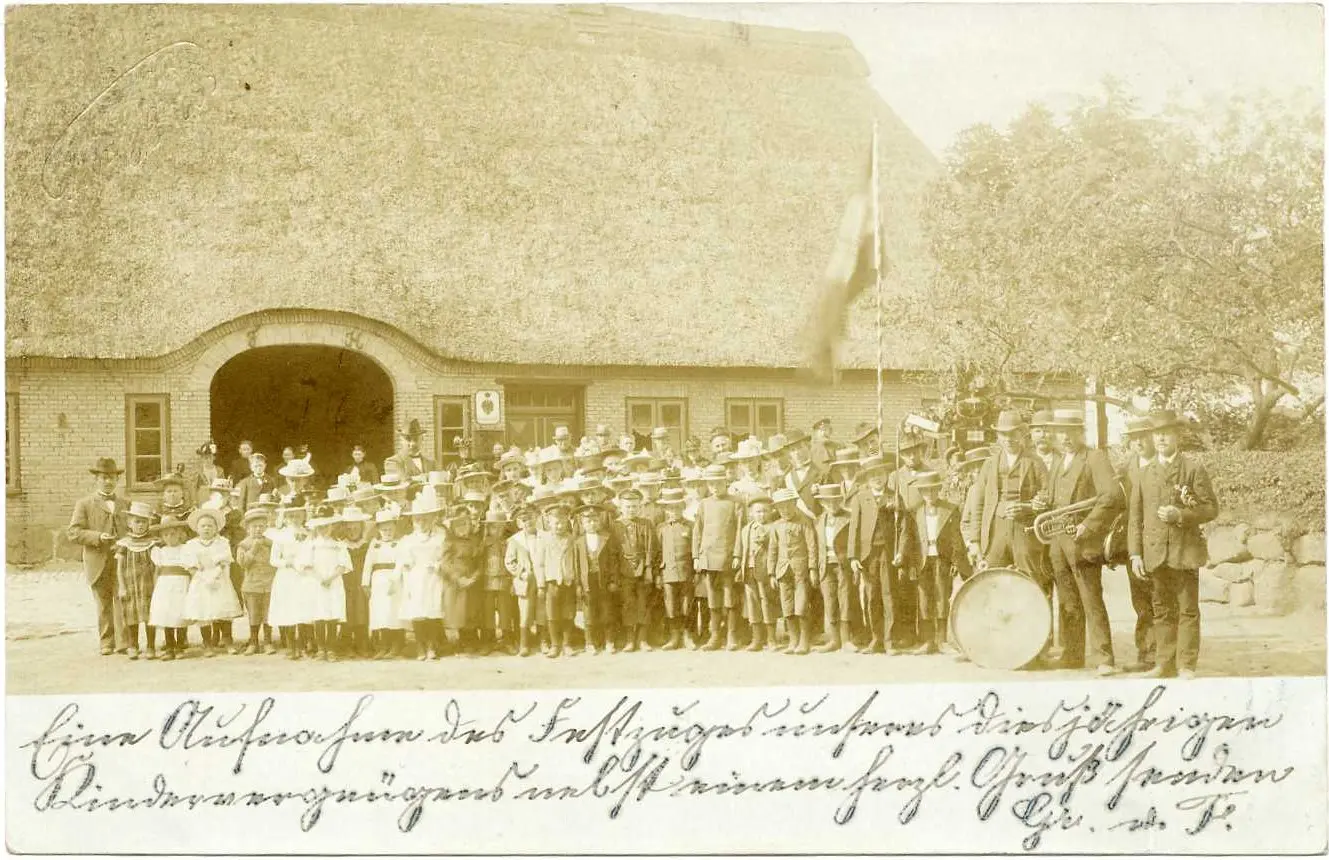 Eine Aufnahme des Festzuges unseres diesjährigen
Kindervergnügens nebst einem herzl. Gruß senden
Gr. u. F.